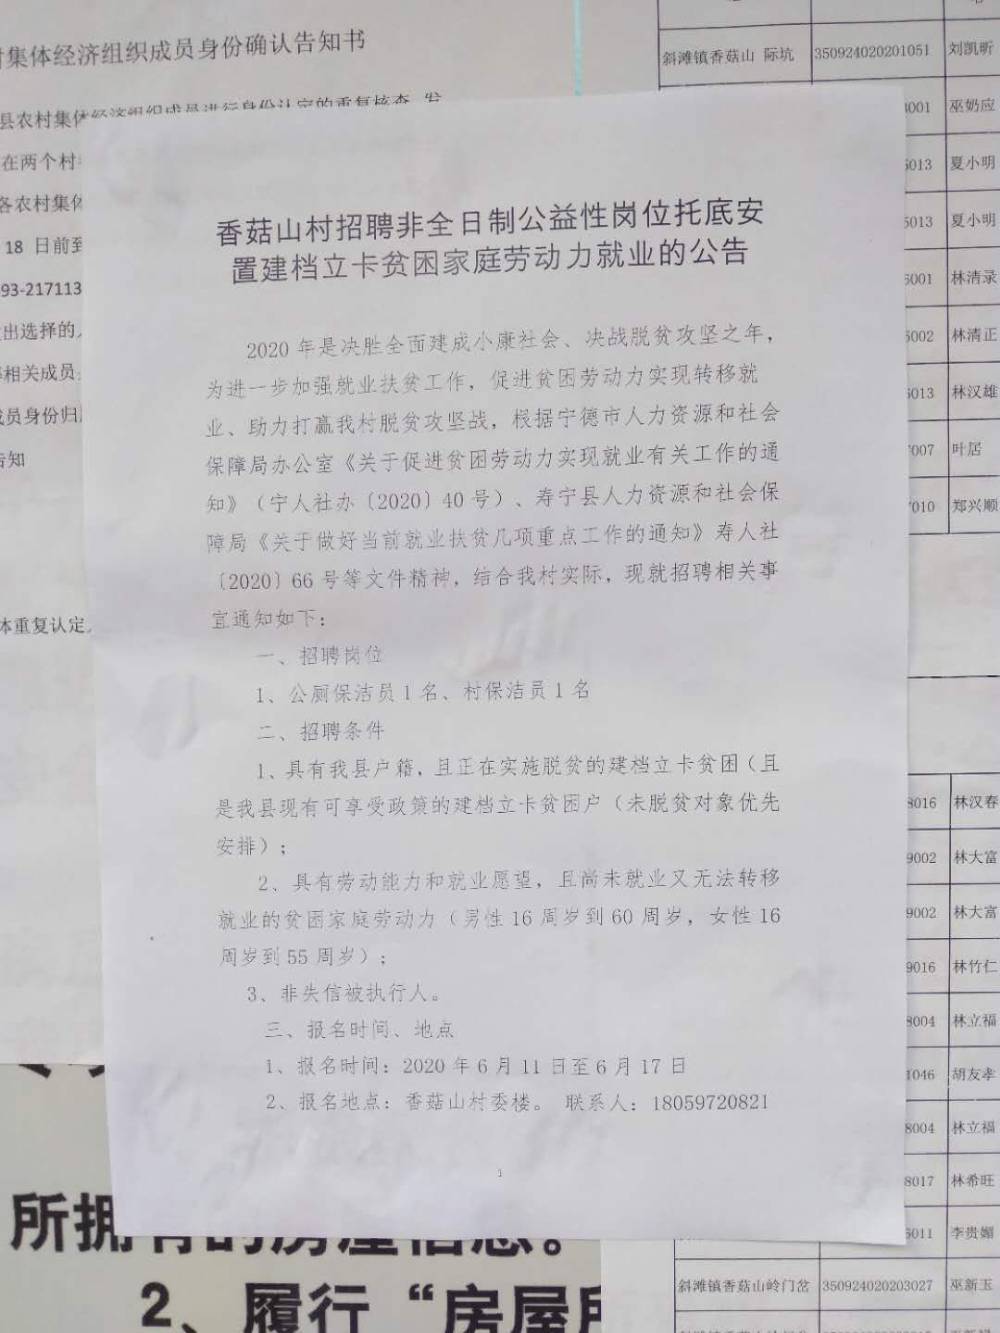 村集体经济组织成员身份确认告知书
县农村集体经济组织成员进行身份认定的重复核查
在两个村
各农村集体
18 日前到
93-217113
出选择的
等相关成员
成员身份归
告知
体重复认定
香菇山村招聘非全日制公益性岗位托底安
置建档立卡贫困家庭劳动力就业的公告
2020 年是决胜全面建成小康社会、决战脱贫攻坚之年，
为进一步加强就业扶贫工作，促进贫困劳动力实现转移就
业、助力打赢我村脱贫攻坚战，根据宁德市人力资源和社会
保障局办公室《关于促进贫困劳动力实现就业有关工作的通
知》（宁人社办〔2020〕40 号）、寿宁县人力资源和社会保
障局《关于做好当前就业扶贫几项重点工作的通知》寿人社
〔2020〕66 号等文件精神，结合我村实际，现就招聘相关事
宜通知如下：
一、招聘岗位
1、公厕保洁员 1 名、村保洁员 1 名
二、招聘条件
1、具有我县户籍，且正在实施脱贫的建档立卡贫困（且
是我县现有可享受政策的建档立卡贫困户（未脱贫对象优先
安排）；
2、具有劳动能力和就业愿望，且尚未就业又无法转移
就业的贫困家庭劳动力（男性 16 周岁到 60 周岁，女性 16
周岁到 55 周岁）；
3、非失信被执行人。
三、报名时间、地点
1、报名时间：2020 年 6 月 11 日至 6 月 17 日
2、报名地点：香菇山村委楼。 联系人：18059720821
1
斜滩镇香菇山 际坑 350924020201051 刘凯昕
001 巫奶应
013 夏小明
013 夏小明
001 林清录
002 林清正
013 林汉雄
007 叶居
010 郑兴顺
8016 林汉春
9002 林大富
9002 林大富
9016 林竹仁
8004 林立福
1046 胡友孝
8004 林立福
8017 林希旺
011 李贵媚
斜滩镇香菇山岭门岔 350924020203027 巫新玉
所拥有的房屋信息。
2、履行“房屋所